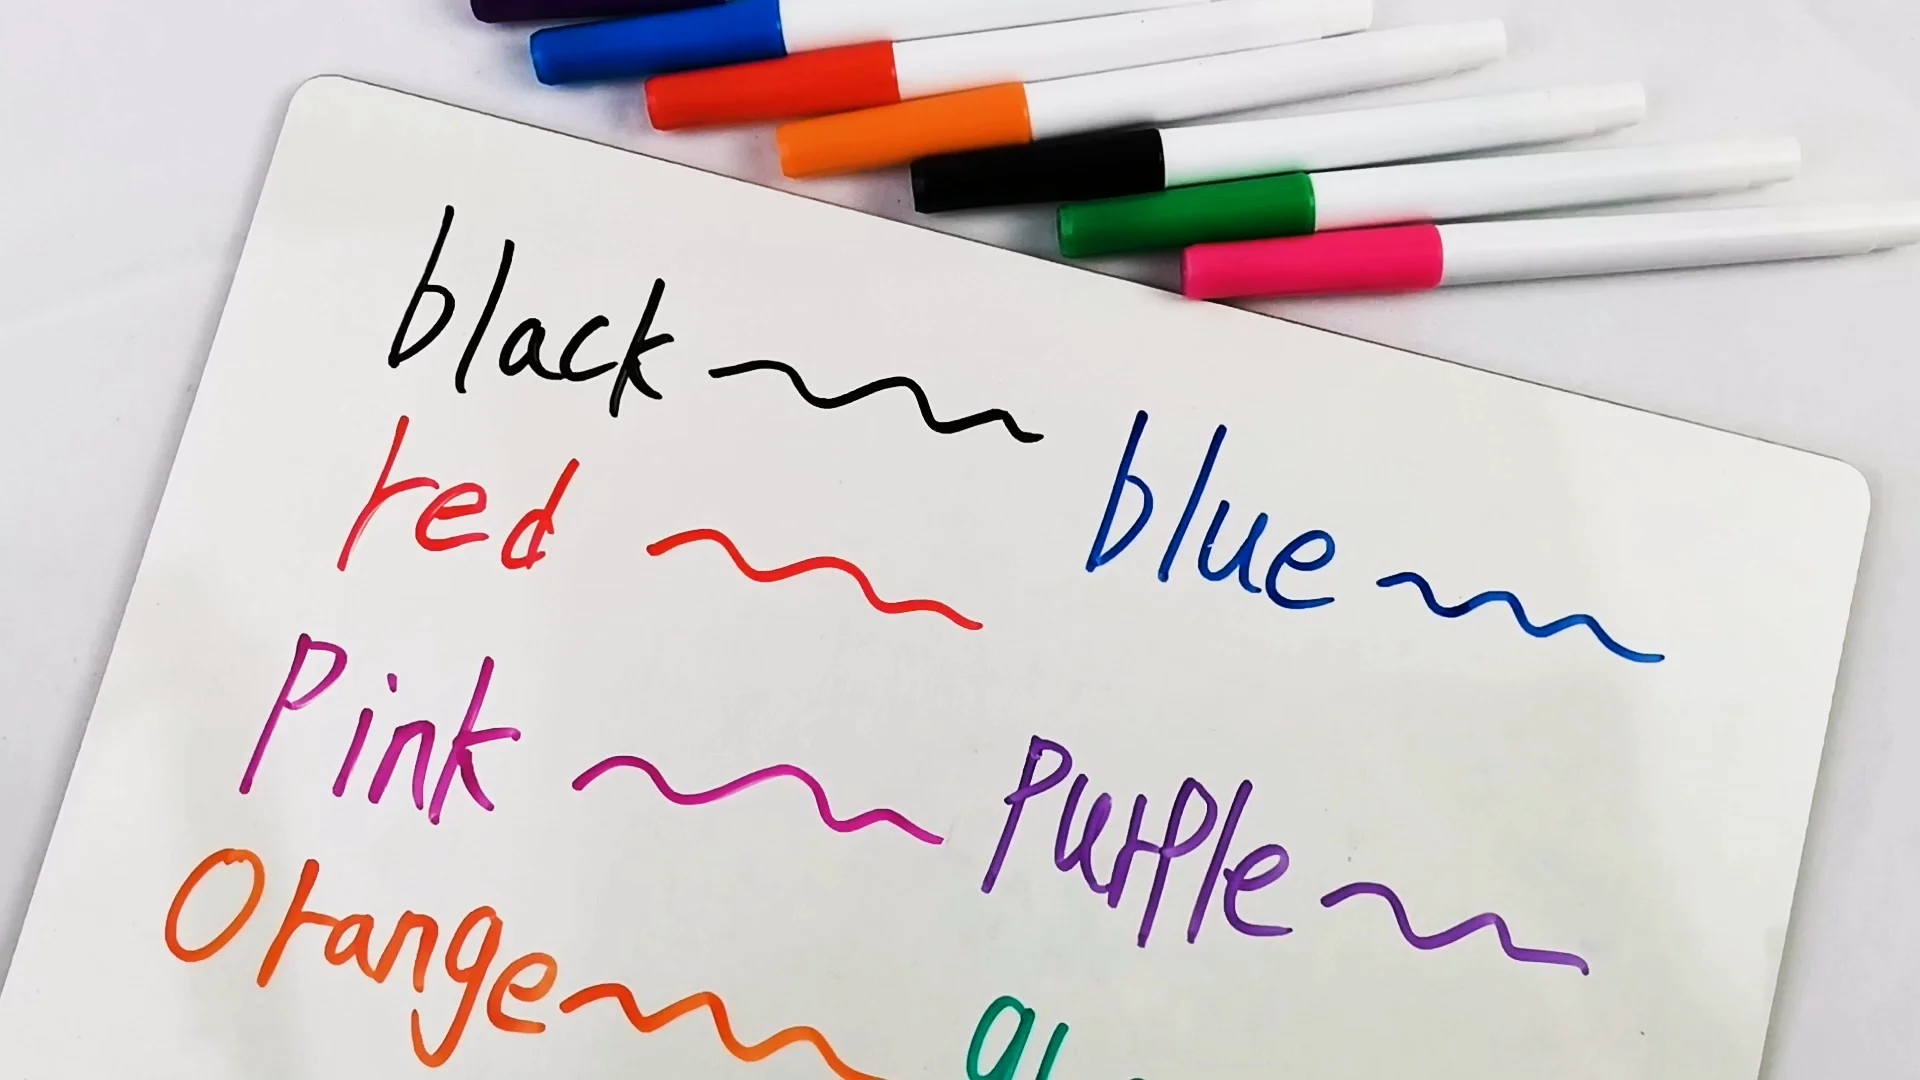 black
blue
red
Pink
Purple
Orange